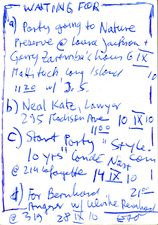 WAITING FOR
a) Party going to Nature
Preserve @ Laura Jackson +
Garry Zaremba's house 6 IX
Mattituck Long Island 10
11:20 w/ J. S.
b) Neal Katz, Lawyer
295 Madison Ave 10 IX 10
11:00
c) Start Party "Style.com
10 yrs" Conde Nast
@ 214 Lafayette 14 IX 10
d) For Bernhard 21:00
w/ Ulrike Reinhard
@ 319 28 IX 10